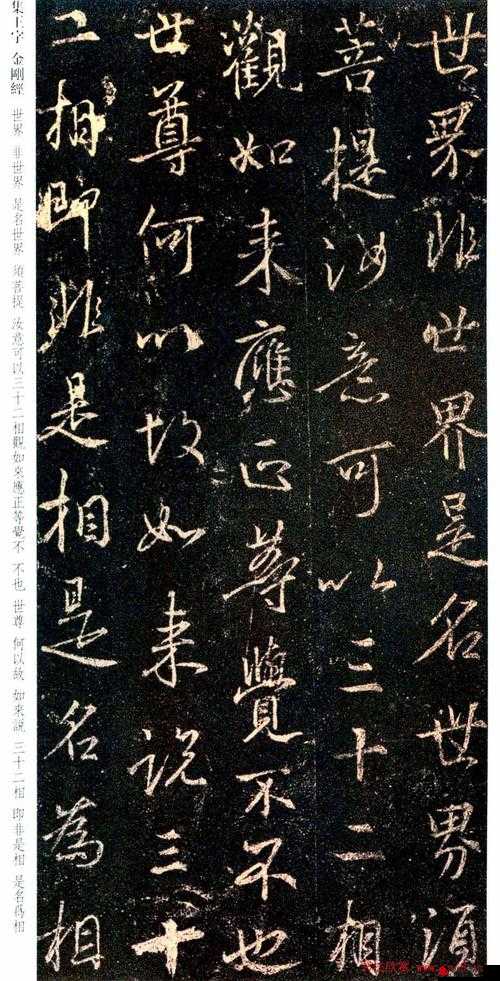 世界非世界是名世界須
菩提汝意可以三十二相
觀如来應正等覺不不也
世尊何以故如来説三十
二相即非是相是名為相
集王字 金剛經 世界 非世界 是名世界 須菩提 汝意可以三十二相觀如來應正等覺不 不也 世尊 何以故 如來説 三十二相 即非是相 是名爲相